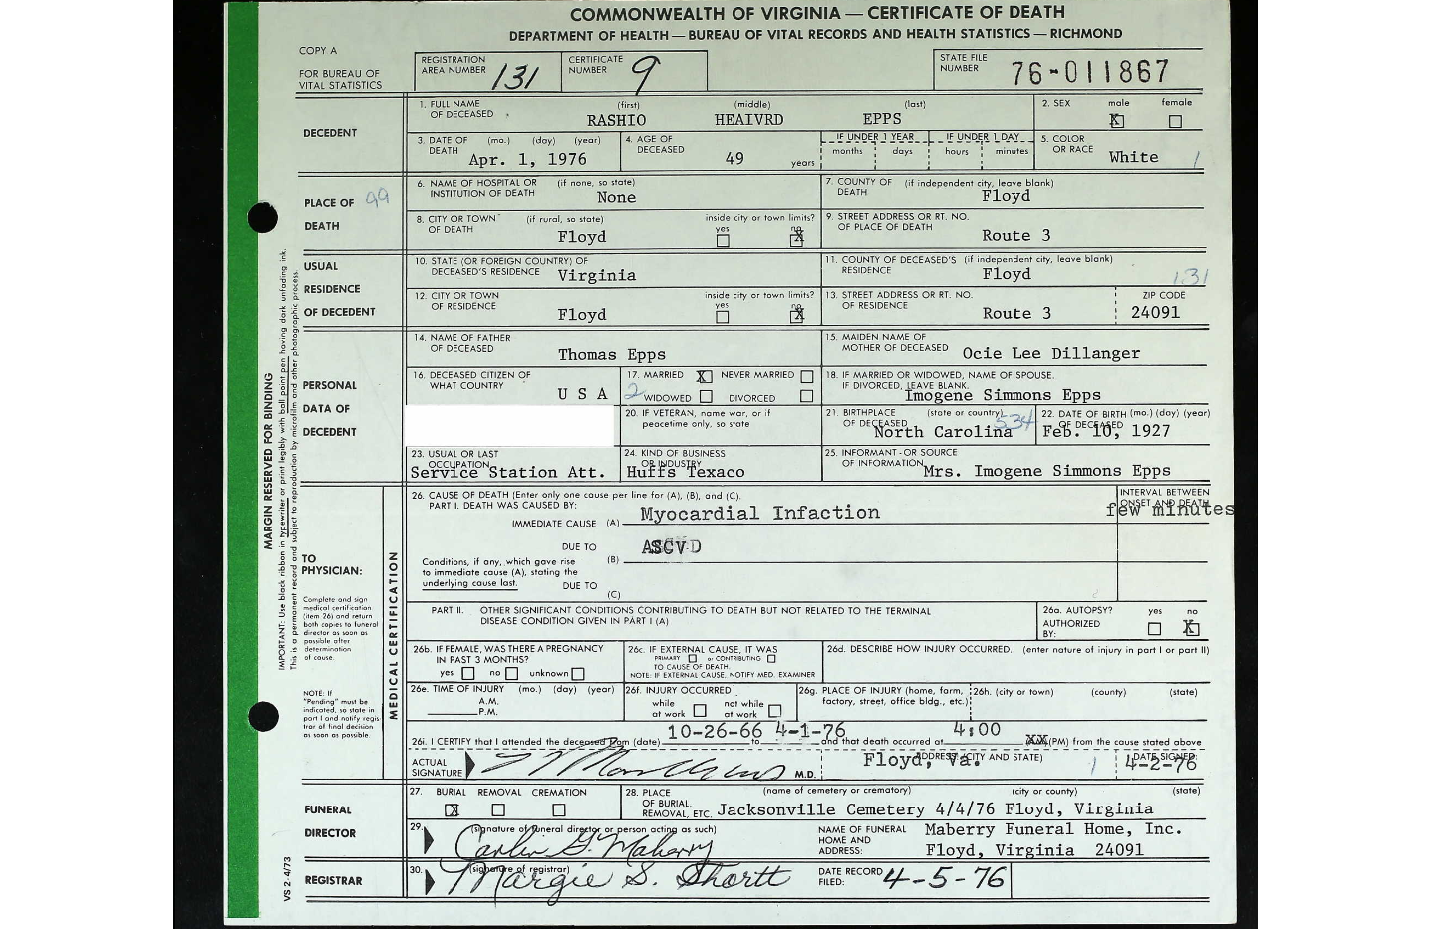 COMMONWEALTH OF VIRGINIA — CERTIFICATE OF DEATH
DEPARTMENT OF HEALTH — BUREAU OF VITAL RECORDS AND HEALTH STATISTICS — RICHMOND
COPY A
FOR BUREAU OF VITAL STATISTICS
REGISTRATION AREA NUMBER 131
CERTIFICATE NUMBER 9
STATE FILE NUMBER 76-011867
DECEDENT
1. FULL NAME OF DECEASED (first) (middle) (last)
RASHIO HEAIVRD EPPS
2. SEX male X female
3. DATE OF DEATH (mo.) (day) (year) Apr. 1, 1976
4. AGE OF DECEASED 49 years
IF UNDER 1 YEAR months days
IF UNDER 1 DAY hours minutes
5. COLOR OR RACE White 1
PLACE OF DEATH 99
6. NAME OF HOSPITAL OR INSTITUTION OF DEATH (if none, so state) None
7. COUNTY OF DEATH (if independent city, leave blank) Floyd
8. CITY OR TOWN OF DEATH (if rural, so state) Floyd
inside city or town limits? yes no X
9. STREET ADDRESS OR RT. NO. OF PLACE OF DEATH Route 3
USUAL RESIDENCE OF DECEDENT
10. STATE (OR FOREIGN COUNTRY) OF DECEASED'S RESIDENCE Virginia
11. COUNTY OF DECEASED'S RESIDENCE (if independent city, leave blank) Floyd 131
12. CITY OR TOWN OF RESIDENCE Floyd
inside city or town limits? yes no X
13. STREET ADDRESS OR RT. NO. OF RESIDENCE Route 3
ZIP CODE 24091
PERSONAL DATA OF DECEDENT
14. NAME OF FATHER OF DECEASED Thomas Epps
15. MAIDEN NAME OF MOTHER OF DECEASED Ocie Lee Dillanger
16. DECEASED CITIZEN OF WHAT COUNTRY U S A
17. MARRIED X NEVER MARRIED
2 WIDOWED DIVORCED
18. IF MARRIED OR WIDOWED, NAME OF SPOUSE. IF DIVORCED, LEAVE BLANK. Imogene Simmons Epps
20. IF VETERAN, name war, or if peacetime only, so state
21. BIRTHPLACE OF DECEASED (state or country) North Carolina 534
22. DATE OF BIRTH OF DECEASED (mo.) (day) (year) Feb. 10, 1927
23. USUAL OR LAST OCCUPATION Service Station Att.
24. KIND OF BUSINESS OR INDUSTRY Huffs Texaco
25. INFORMANT - OR SOURCE OF INFORMATION Mrs. Imogene Simmons Epps
MARGIN RESERVED FOR BINDING
IMPORTANT: Use black ribbon in typewriter or print legibly with ball point pen having dark unfading ink.
This is a permanent record and subject to reproduction by microfilm and other photographic process.
TO PHYSICIAN:
Complete and sign medical certification (item 26) and return both copies to funeral director as soon as possible after determination of cause.
NOTE: IF "Pending" must be indicated, so state in part I and notify registrar of final decision as soon as possible.
MEDICAL CERTIFICATION
26. CAUSE OF DEATH (Enter only one cause per line for (A), (B), and (C).
PART I. DEATH WAS CAUSED BY:
INTERVAL BETWEEN ONSET AND DEATH
IMMEDIATE CAUSE (A) Myocardial Infaction few minutes
DUE TO (B) ASCVD
Conditions, if any, which gave rise to immediate cause (A), stating the underlying cause last.
DUE TO (C)
PART II. OTHER SIGNIFICANT CONDITIONS CONTRIBUTING TO DEATH BUT NOT RELATED TO THE TERMINAL DISEASE CONDITION GIVEN IN PART I (A)
26a. AUTOPSY? AUTHORIZED BY: yes no X
26b. IF FEMALE, WAS THERE A PREGNANCY IN PAST 3 MONTHS? yes no unknown
26c. IF EXTERNAL CAUSE, IT WAS PRIMARY or CONTRIBUTING TO CAUSE OF DEATH.
NOTE: IF EXTERNAL CAUSE, NOTIFY MED. EXAMINER
26d. DESCRIBE HOW INJURY OCCURRED. (enter nature of injury in part I or part II)
26e. TIME OF INJURY (mo.) (day) (year) A.M. P.M.
26f. INJURY OCCURRED while at work not while at work
26g. PLACE OF INJURY (home, farm, factory, street, office bldg., etc.)
26h. (city or town) (county) (state)
26i. I CERTIFY that I attended the deceased from (date) 10-26-66 to 4-1-76 and that death occurred at 4:00 (PM) from the cause stated above
ACTUAL SIGNATURE M.D.
ADDRESS (CITY AND STATE) Floyd, Va. 1
DATE SIGNED: 4-2-76
FUNERAL DIRECTOR
27. BURIAL X REMOVAL CREMATION
28. PLACE OF BURIAL, REMOVAL, ETC. (name of cemetery or crematory) (city or county) (state)
Jacksonville Cemetery 4/4/76 Floyd, Virginia
29. (signature of funeral director or person acting as such) Carlin G. Maberry
NAME OF FUNERAL HOME AND ADDRESS: Maberry Funeral Home, Inc.
Floyd, Virginia 24091
REGISTRAR
30. (signature of registrar) Margie S. Shortt
DATE RECORD FILED: 4-5-76
VS 2-4/73